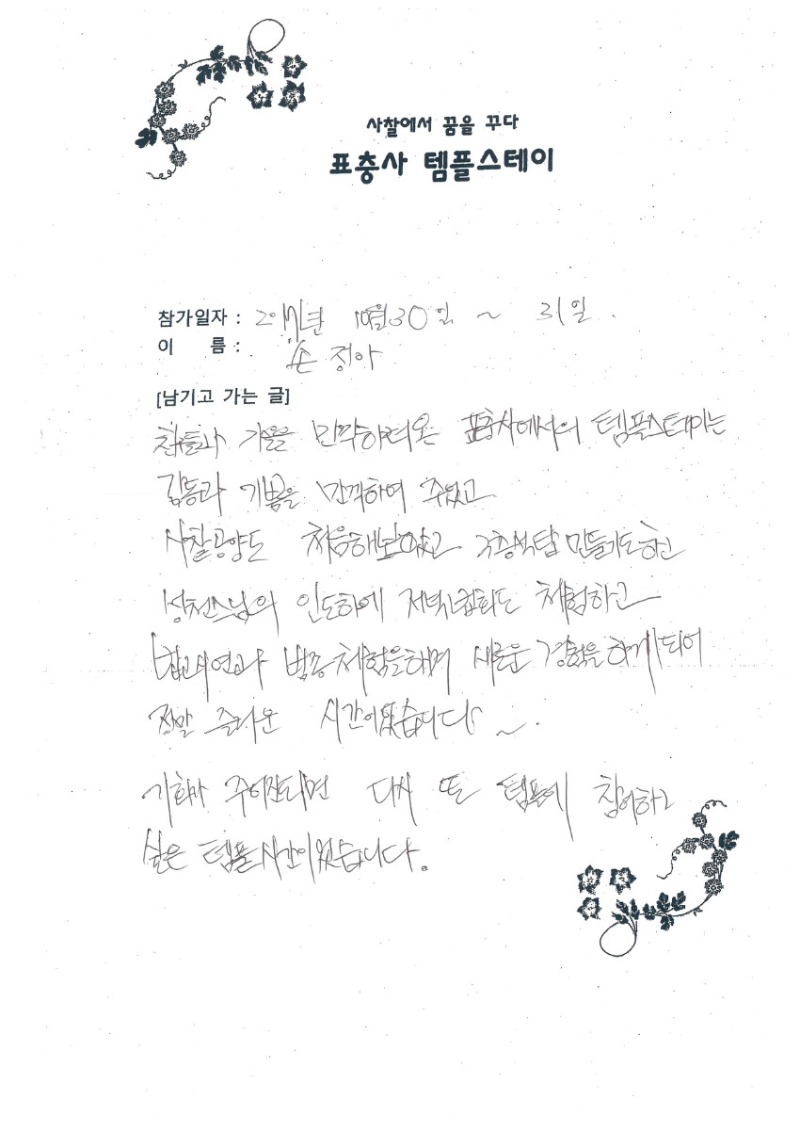 사찰에서 꿈을 꾸다
표충사 템플스테이
참가일자 : 2017년 10월 30일 ~ 31일.
이 름 : 손 정아
[남기고 가는 글]
가을을 만끽하러온 표충사에서의 템플스테이는
감동과 기쁨을 만끽하여 주었고
사찰공양도 처음해보았고 만들기도하고
성천스님의 인도하에 저녁법회도 체험하고
법고시연과 범종체험을하며 새로운 경험을 하게되어
정말 즐거운 시간이었습니다 ~.
기회가 주어진다면 다시 또 템플에 참여하고
싶은 템플시간이었습니다.